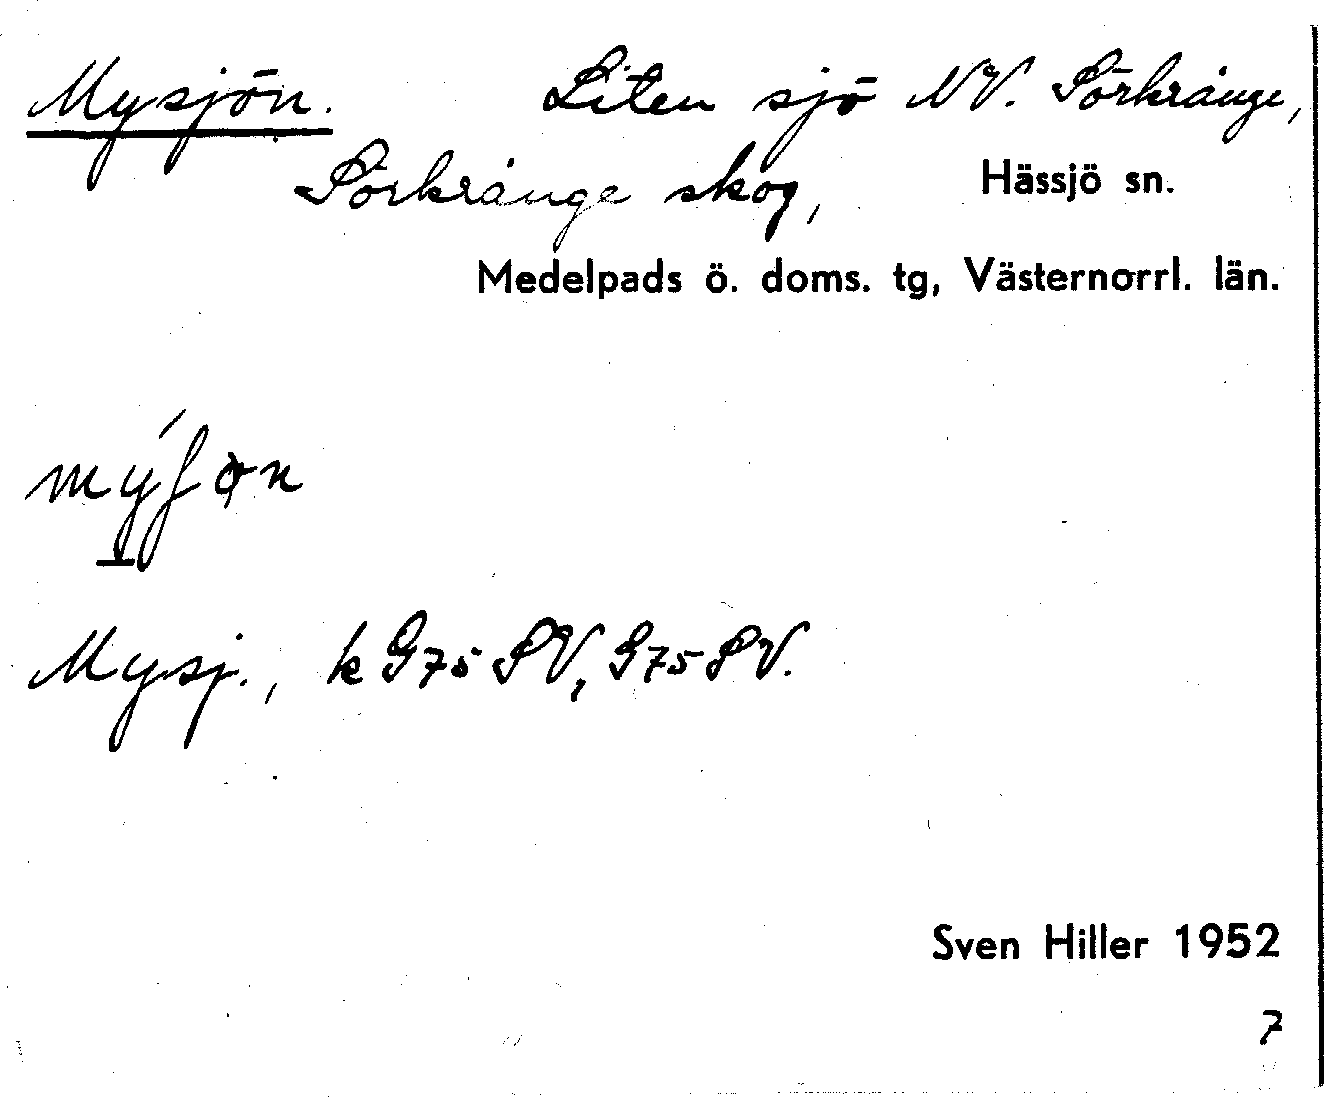 Mysjön. Liten sjö NV. Sörkrånge,
Sörkrånge skog, Hässjö sn.
Medelpads ö. doms. tg, Västernorrl. län.
Mysj., k G75 SV, G75 SV.
Sven Hiller 1952
7